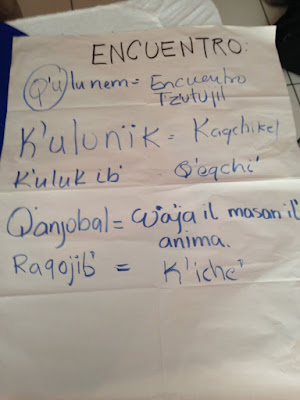 ENCUENTRO:
Q'ulunem = Encuentro
Tzutujil
K'ulunïk = Kaqchikel
K'uluk ib' Q'eqchi'
Q'anjobal = Wäjail masanil'
anima.
Raqojib' = K'iche'